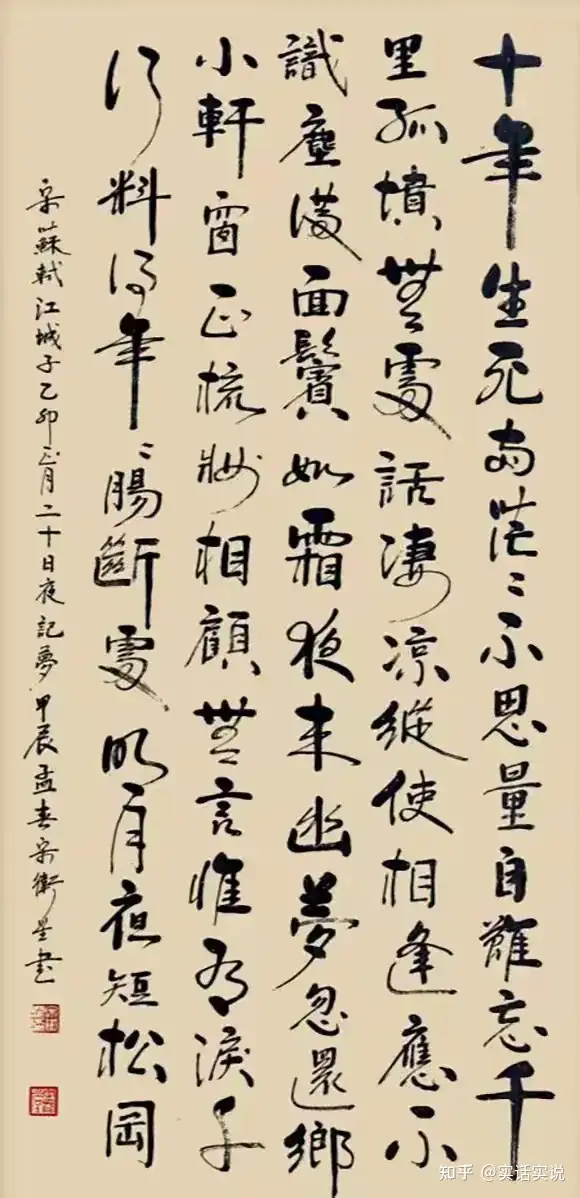 十年生死兩茫〻不思量自難忘千
里孤墳無處話凄凉縱使相逢應不
識塵滿面鬢如霜夜來幽夢忽還鄉
小軒窗正梳妝相顧無言惟有淚千
行料得年〻腸斷處明月夜短松岡
宋蘇軾江城子乙卯正月二十日夜記夢甲辰孟春宋衛星書
知乎 @实话实说